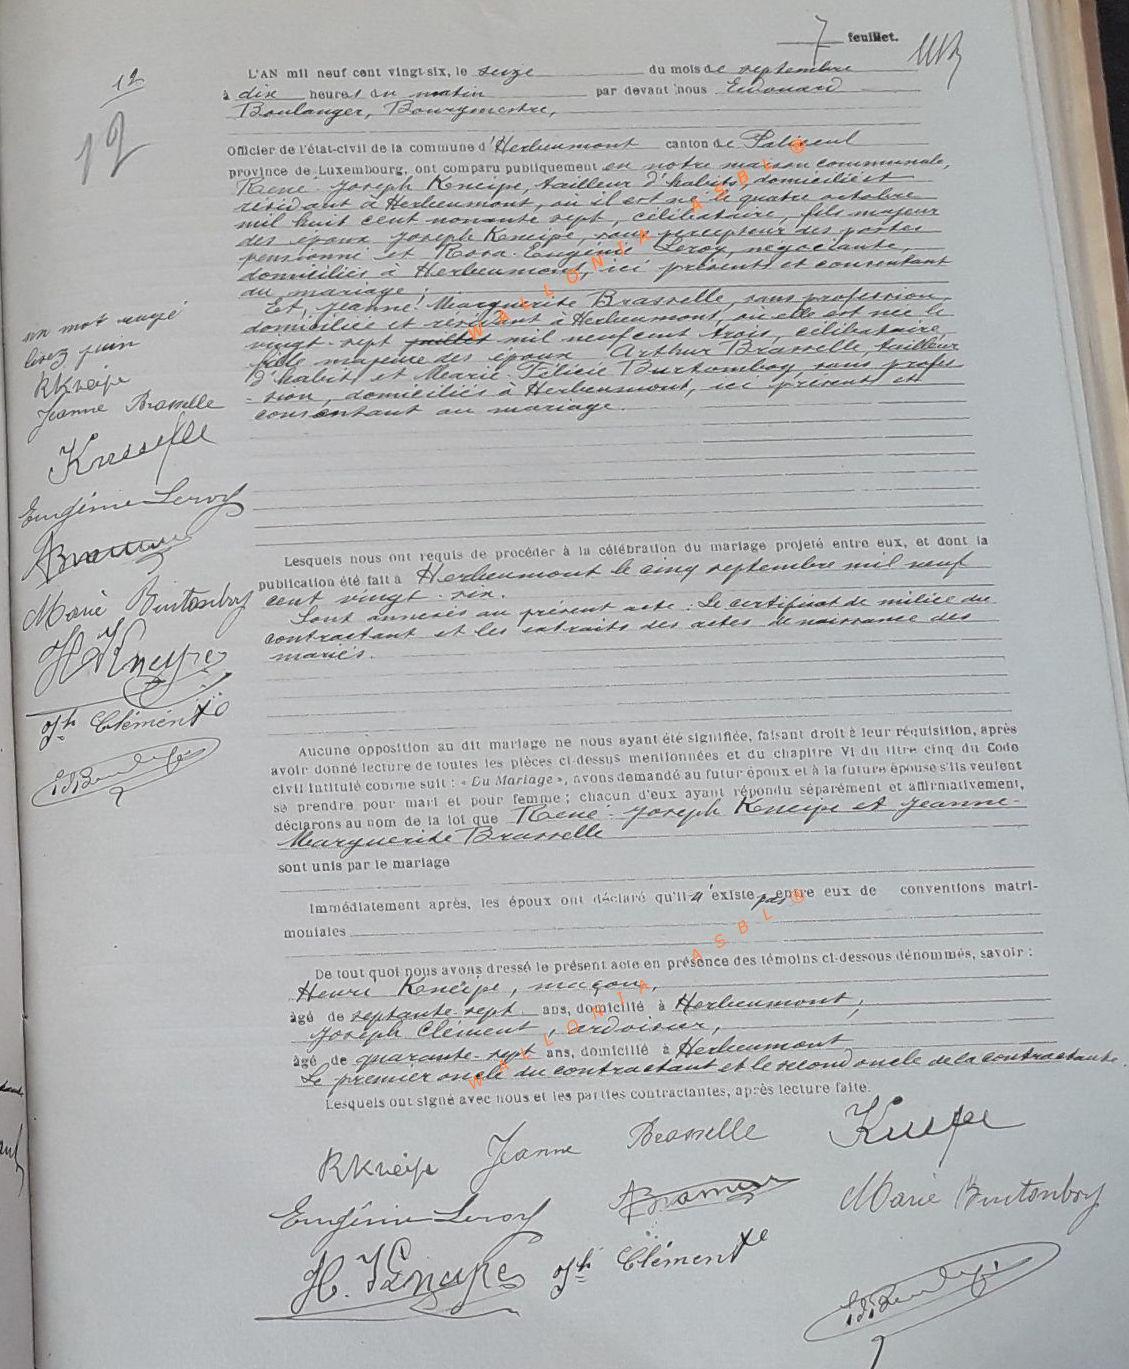 7 feuillet.
12
12
L'AN mil neuf cent vingt-six, le seize du mois de septembre
à dix heures du matin par devant nous Edouard
Boulanger, Bourgmestre,
Officier de l'état-civil de la commune d'Herbeumont canton de Paliseul
province de Luxembourg, ont comparu publiquement en notre maison communale,
René-Joseph Kneipe, tailleur d'habits, domicilié et
résidant à Herbeumont, où il est né le quatre octobre
mil huit cent nonante sept, célibataire, fils majeur
des époux Joseph Kneipe, sous-percepteur des postes
pensionné et Rosa-Eugénie Leroy, négociante,
domiciliés à Herbeumont, ici présents et consentant
au mariage;
Et, Jeanne-Marguerite Brasselle, sans profession,
domiciliée et résidant à Herbeumont, où elle est née le
vingt-sept juillet mil neuf cent trois, célibataire,
fille majeure des époux Arthur Brasselle, tailleur
d'habits et Marie-Félicie Burtomboy, sans profes
-sion, domiciliés à Herbeumont, ici présent et
consentant au mariage.
un mot rayé
lisez juin
RKneipe
Jeanne Brasselle
Kneipe
Eugénie Leroy
Marie Burtonboy
H. Kneipe
Jh Clément
Ed Boulanger
Lesquels nous ont requis de procéder à la célébration du mariage projeté entre eux, et dont la
publication été fait à Herbeumont le cinq septembre mil neuf
cent vingt-six.
Sont annexés au présent acte: Le certificat de milice du
contractant et les extraits des actes de naissance des
mariés.
Aucune opposition au dit mariage ne nous ayant été signifiée, faisant droit à leur réquisition, après
avoir donné lecture de toutes les pièces ci-dessus mentionnées et du chapitre VI du titre cinq du Code
civil intitulé comme suit : « Du Mariage », avons demandé au futur époux et à la future épouse s'ils veulent
se prendre pour mari et pour femme ; chacun d'eux ayant répondu séparément et affirmativement,
déclarons au nom de la loi que René-Joseph Kneipe et Jeanne-
Marguerite Brasselle
sont unis par le mariage
Immédiatement après, les époux ont déclaré qu'il n'existe pas entre eux de conventions matri-
moniales
De tout quoi nous avons dressé le présent acte en présence des témoins ci-dessous dénommés, savoir :
Henri Kneipe, maçon,
âgé de septante-sept ans, domicilié à Herbeumont,
Joseph Clément, ardoisier,
âgé de quarante-sept ans, domicilié à Herbeumont
Le premier oncle du contractant et le second oncle de la contractante.
Lesquels ont signé avec nous et les parties contractantes, après lecture faite.
RKneipe Jeanne Brasselle Kneipe
Eugénie Leroy Marie Burtonboy
H. Kneipe Jh Clément
Ed Boulanger
WALLONIA ASBL ©
WALLONIA ASBL ©